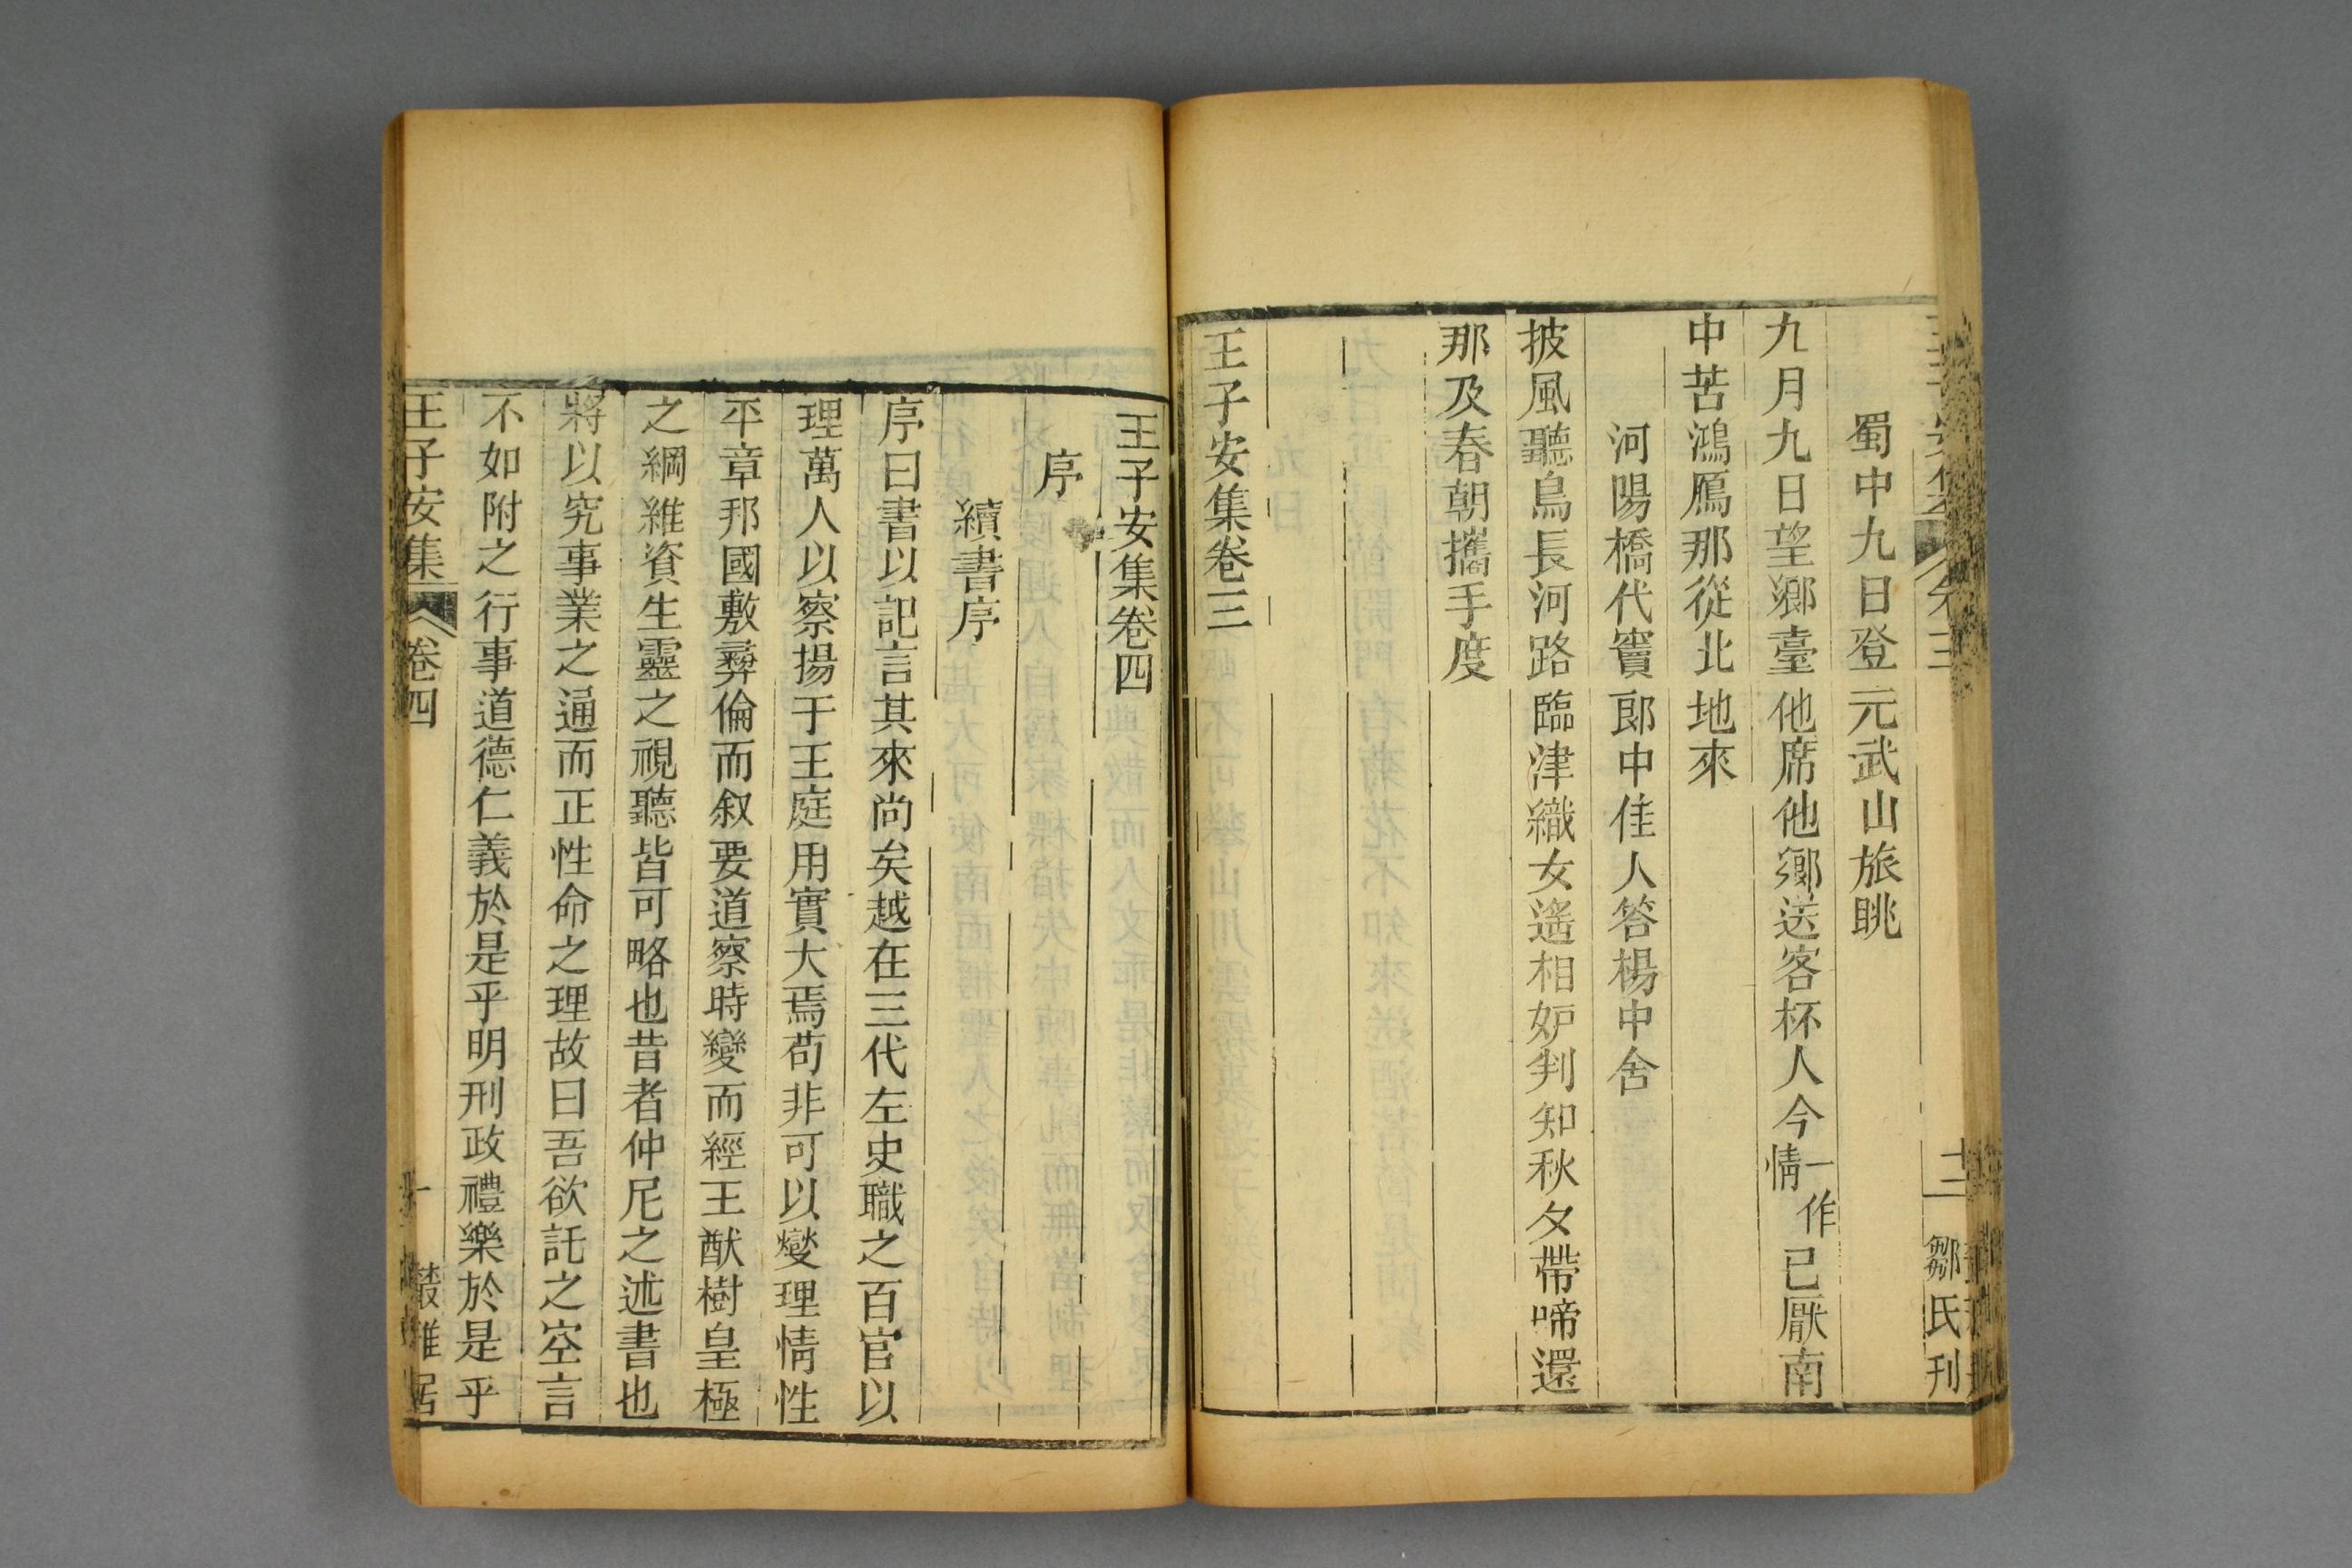 蜀中九日登元武山旅眺
九月九日望鄉臺他席他鄉送客杯人今一作情已厭南
中苦鴻鴈那從北地來
河陽橋代竇郎中佳人答楊中舍
披風聽鳥長河路臨津織女遙相妒判知秋夕帶啼還
那及春朝攜手度
王子安集卷三
卷三
十二
鄒氏刊
王子安集卷四
序
續書序
序曰書以記言其來尚矣越在三代左史職之百官以
理萬人以察揚于王庭用實大焉苟非可以燮理情性
平章邦國敷彞倫而叙要道察時變而經王猷樹皇極
之綱維資生靈之視聽皆可略也昔者仲尼之述書也
將以究事業之通而正性命之理故曰吾欲託之空言
不如附之行事道德仁義於是乎明刑政禮樂於是乎
王子安集
卷四
一
叢雅居